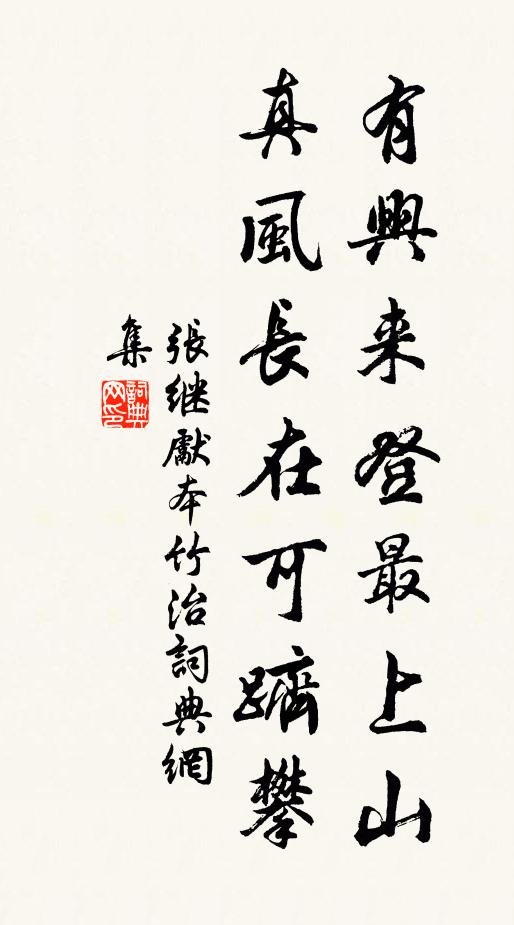 有興来登最上山
真風長在可躋攀
張继獻本竹治詞典網
集
詞典网印